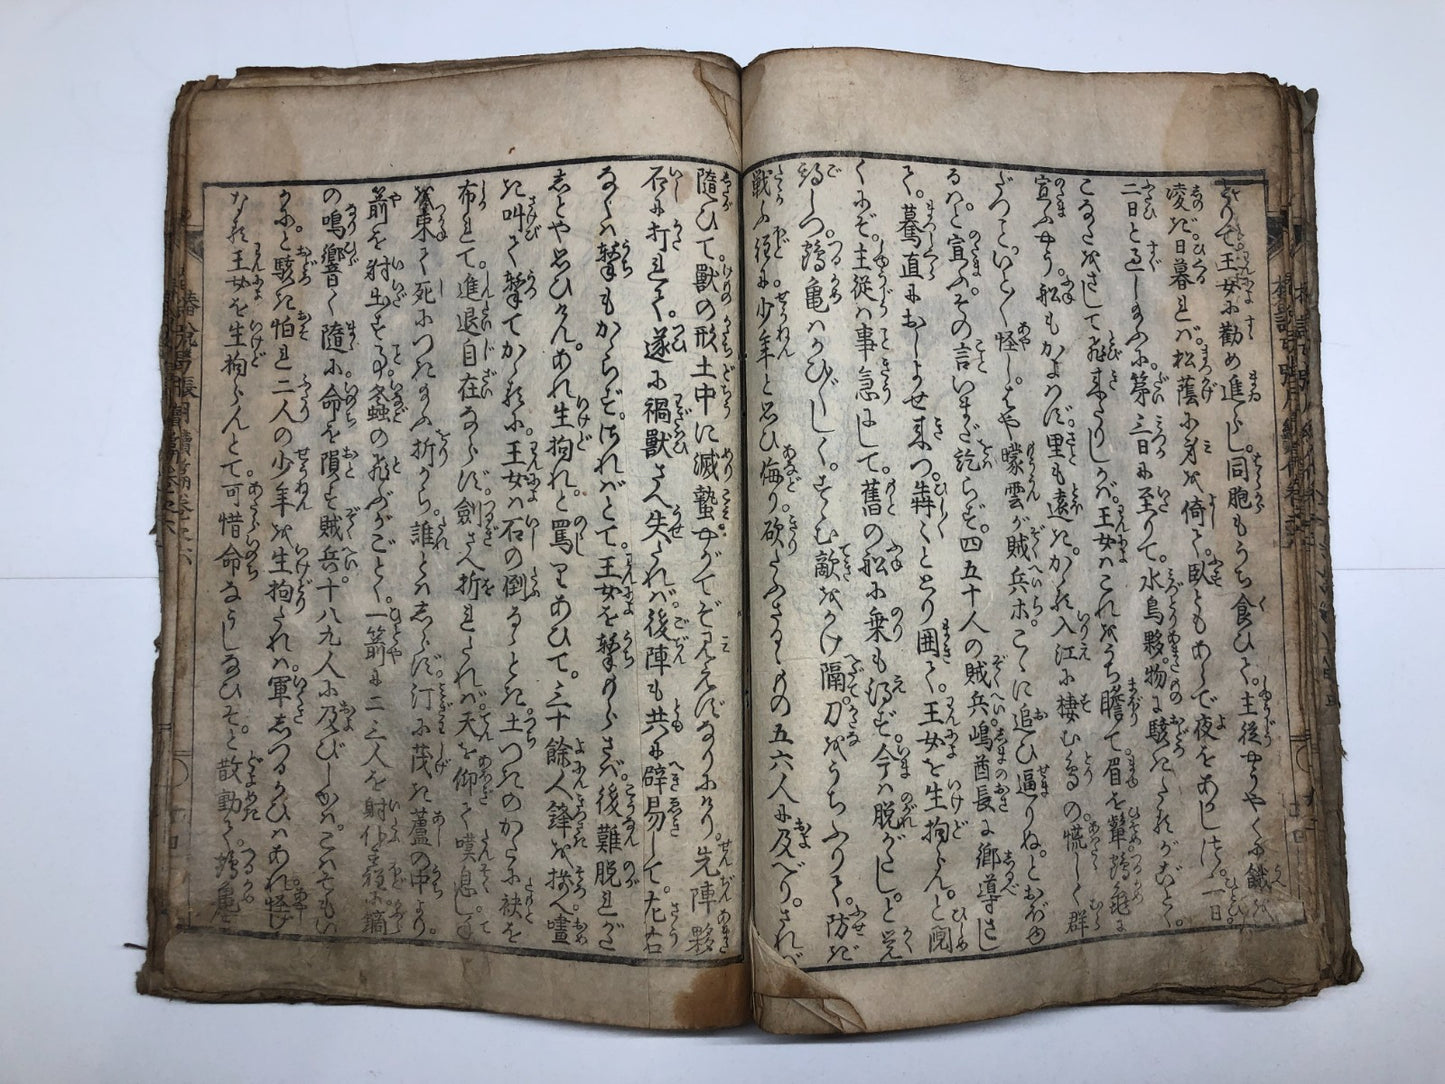 まゐりて王女に勧め進らし。同胞もうち食ひて。主従やうやくに餓を
凌ぎ。日暮れば松蔭に身を倚て。臥ともあらで夜をあかしつ。一日
二日と過しまふに。第三日に至りて。水鳥夥。物に駭きたるがごとく。
こなたをさして飛来たりしかば。王女はこれをうち瞻て眉を顰。鶴亀よ
宣ふやう。船もかよはず。里も遠き。かゝる入江に棲む鳥の。慌しく群
だつこといといと怪し。もや曚雲が賊兵ホ。こゝに追ひ逼りね。とおぼゆ
るはと宣ふ。その言いまだ訖らず。四五十人の賊兵。嶋酋長を郷導さし
て。驀直におしよせ来つ。犇々ととり囲て。王女を生拘らん。と鬩
くにぞ。主従は事急にして。舊の船に乗も得ず。今は脱がたし。と覚
期しつ。鶴亀はかひがひしく。すゝむ敵をかけ隔。刀をうちふりて。防ぎ
戦ふ程に。少年と思ひ侮り。砍たふさるゝもの五六人に及べり。されば
隨ひて。獣の形土中に滅蟄。やがてぞ見えずなりにけり。先陣夥
石に打れて。遂に禍獣さへ失たれば。後陣も共に辟易して。左右
なくは撃もかゝらず。さればとて。王女を撃もらさば。後難脱れがた
しとや思ひけん。あれ生拘れ。と罵りあひて。三十餘人鋒を揃へ。嘩
き叫て撃てかゝるに。王女は石の倒るゝとき。土つきのかたに袂を
布れて。進退自在ならず。剣さへ折れたれば。天を仰て嘆息し。
拳束て死につきまふ折から。誰とはしらず。汀に茂き蘆の中より。
箭を射出すこと。螽の飛ぶがごとく。一箭に二三人を射仆す程に。鏑
の鳴響く隨に。命を隕す賊兵。十八九人に及びしかば。こはそもい
かにと駭き怕れ。二人の少年を生拘たれば。軍しつるかひはあれ。怪げ
なる王女を生拘らんとて。可惜命なうしなひそ。と散動て。鶴亀